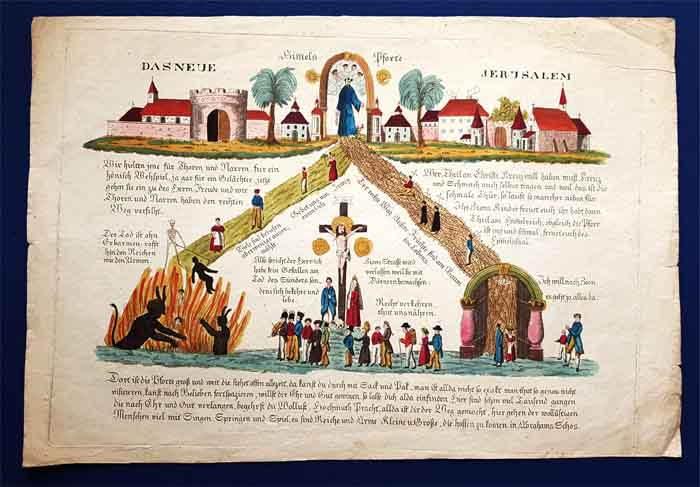 DAS NEUE
Himels Pforte
JERUSALEM
Wir hielten jene für Thoren und Narren, für ein
hönisch Wehspiel, ja gar für ein Gelächter, jetzt
gehen sie ein zu des Herrn Freude und wir
Thoren und Narren haben den rechten
Weg verfehlt.
Wer Theil an Christi Kreuz will haben muß Kreuz
und Schmach auch selber tragen und weil das ist die
schmale Thür, so lauft so mancher neben für
Ihr Kinder freuet euch ihr habt dran
Theil am Himelreich, obgleich die Pforte
ist eng und schmal freuet euch des
Der Tod ist ohn
Erbarmen, rafft
hin den Reichen
wie den Armen.
Gehet ein zum
Der enge Weg
Also spricht der Herr ich
habe kein Gefallen am
Tod des Sünders son,
dern sich bekehre und
lebe.
Zions Straße wird
verlassen weil sie mit
Dörnern bewachsen.
Recht verkehren
thut uns nähren.
Ich will nach Zion
es geht ja alles da.
Dort ist die Pforte groß und weit die stehet offen allezeit, da kanst du durch mit Sack und Pak, man ist allda nicht so exakt man thut so genau nicht
visitieren, kanst nach Belieben fortspazieren, willst der Ehr und Gut gewinen, so laße dich allda einfinden hier sind schon viel Tausend gangen
die nach Ehr und Gut verlangen, begehrst du Wollust, Hochmuth Pracht, allda ist dir der Weg gemacht, hier gehen der wollüstigen
Menschen viel mit Singen Springen und Spiel, es sind Reiche und Arme Kleine u. Große, die hoffen zu komen in Abrahams Schos.